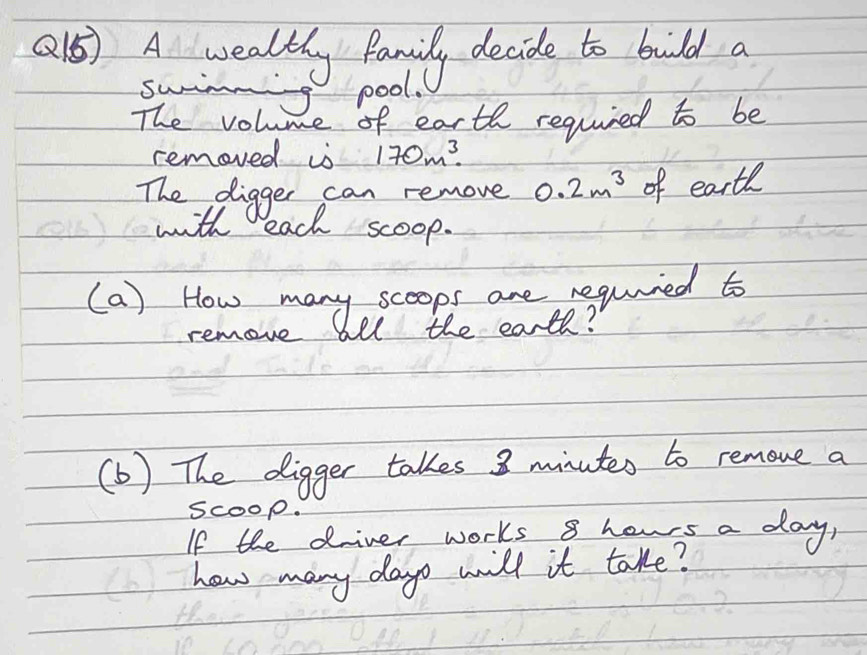 Q15) A wealthy family decide to build a
swimming pool.
The volume of earth required to be
removed is 170m³.
The digger can remove 0.2m³ of earth
with each scoop.
(a) How many scoops are required to
remove all the earth?
(b) The digger takes 3 minutes to remove a
scoop.
If the driver works 8 hours a day,
how many days will it take?